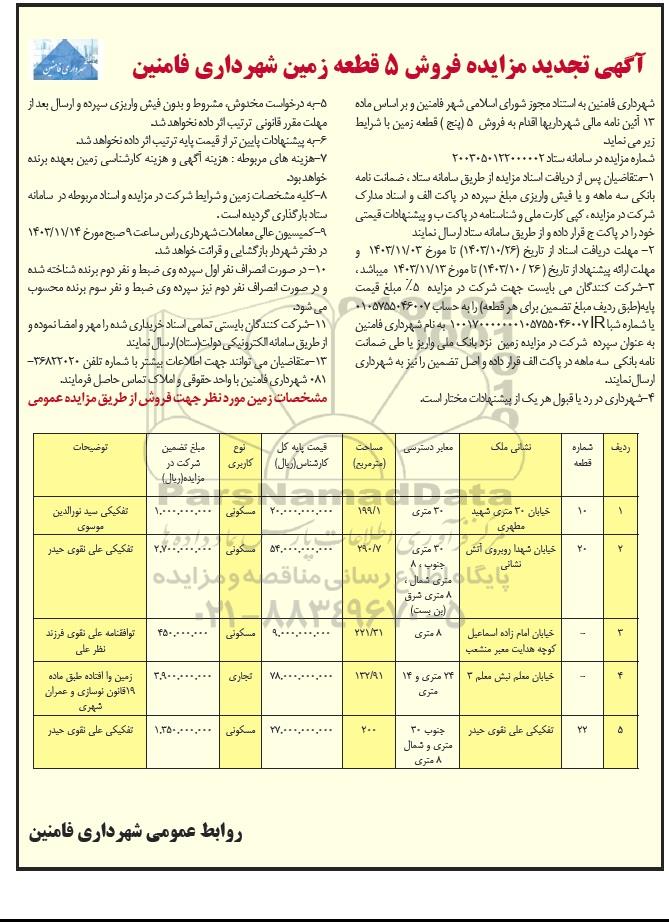 آگهی تجدید مزایده فروش ۵ قطعه زمین شهرداری فامنین
شهرداری فامنین
شهرداری فامنین به استناد مجوز شورای اسلامی شهر فامنین و بر اساس ماده
۱۳ آئین نامه مالی شهرداریها اقدام به فروش ۵ (پنج) قطعه زمین با شرایط
زیر می نماید.
شماره مزایده در سامانه ستاد ۲۰۰۳۰۵۰۱۲۲۰۰۰۰۰۲
۱-متقاضیان پس از دریافت اسناد مزایده از طریق سامانه ستاد ، ضمانت نامه
بانکی سه ماهه و یا فیش واریزی مبلغ سپرده در پاکت الف و اسناد مدارک
شرکت در مزایده ، کپی کارت ملی و شناسنامه در پاکت ب و پیشنهادات قیمتی
خود را در پاکت ج قرار داده و از طریق سامانه ستاد ارسال نمایند
۲- مهلت دریافت اسناد از تاریخ (۱۴۰۳/۱۰/۲۶) تا مورخ ۱۴۰۳/۱۱/۰۳ و
مهلت ارائه پیشنهاد از تاریخ (۲۶ / ۱۴۰۳/۱۰) تا مورخ ۱۴۰۳/۱۱/۱۳ میباشد ،
۳-شرکت کنندگان می بایست جهت شرکت در مزایده ۵٪ مبلغ قیمت
پایه(طبق ردیف مبلغ تضمین برای هر قطعه) را به حساب ۰۱۰۵۷۵۵۰۴۶۰۰۷
یا شماره شبا IR ۱۰۰۱۷۰۰۰۰۰۰۰۱۰۵۷۵۵۰۴۶۰۰۷ به نام شهرداری فامنین
به عنوان سپرده شرکت در مزایده زمین نزد بانک ملی واریز یا طی ضمانت
نامه بانکی سه ماهه در پاکت الف قرار داده و اصل تضمین را نیز به شهرداری
ارسال نمایند.
۴-شهرداری در رد یا قبول هر یک از پیشنهادات مختار است.
۵-به درخواست مخدوش، مشروط و بدون فیش واریزی سپرده و ارسال بعد از
مهلت مقرر قانونی ترتیب اثر داده نخواهد شد.
۶-به پیشنهادات پایین تر از قیمت پایه ترتیب اثر داده نخواهد شد.
۷-هزینه های مربوطه : هزینه آگهی و هزینه کارشناسی زمین بعهده برنده
خواهد بود.
۸-کلیه مشخصات زمین و شرایط شرکت در مزایده و اسناد مربوطه در سامانه
ستاد بارگذاری گردیده است .
۹-کمیسیون عالی معاملات شهرداری راس ساعت ۹ صبح مورخ ۱۴۰۳/۱۱/۱۴
در دفتر شهردار بازگشایی و قرائت خواهد شد.
۱۰- در صورت انصراف نفر اول سپرده وی ضبط و نفر دوم برنده شناخته شده
و در صورت انصراف نفر دوم نیز سپرده وی ضبط و نفر سوم برنده محسوب
می شود.
۱۱-شرکت کنندگان بایستی تمامی اسناد خریداری شده را مهر و امضا نموده و
از طریق سامانه الکترونیکی دولت(ستاد) ارسال نمایند
۱۳-متقاضیان می توانند جهت اطلاعات بیشتر با شماره تلفن ۳۶۸۲۲۰۲۰-
۰۸۱ شهرداری فامنین با واحد حقوقی و املاک تماس حاصل فرمایند.
مشخصات زمین مورد نظر جهت فروش از طریق مزایده عمومی
ردیف شماره قطعه نشانی ملک معابر دسترسی مساحت (مترمربع) قیمت پایه کل کارشناس(ریال) نوع کاربری مبلغ تضمین شرکت در مزایده(ریال) توضیحات
۱ ۱۰ خیابان ۳۰ متری شهید مطهری ۳۰ متری ۱۹۹/۱ ۲۰.۰۰۰.۰۰۰.۰۰۰ مسکونی ۱.۰۰۰.۰۰۰.۰۰۰ تفکیکی سید نورالدین موسوی
۲ ۲۰ خیابان شهدا روبروی آتش نشانی ۳۰ متری جنوب ، ۸ متری شمال ، ۸ متری شرق (بن بست) ۲۹۰/۷ ۵۴.۰۰۰.۰۰۰.۰۰۰ مسکونی ۲.۷۰۰.۰۰۰.۰۰۰ تفکیکی علی نقوی حیدر
۳ -- خیابان امام زاده اسماعیل کوچه هدایت معبر منشعب ۸ متری ۲۲۱/۳۱ ۹.۰۰۰.۰۰۰.۰۰۰ مسکونی ۴۵۰.۰۰۰.۰۰۰ توافقنامه علی نقوی فرزند نظر علی
۴ -- خیابان معلم نبش معلم ۳ ۲۴ متری و ۱۴ متری ۱۳۲/۹۱ ۷۸.۰۰۰.۰۰۰.۰۰۰ تجاری ۳.۹۰۰.۰۰۰.۰۰۰ زمین وا افتاده طبق ماده ۱۹قانون نوسازی و عمران شهری
۵ ۲۲ تفکیکی علی نقوی حیدر جنوب ۳۰ متری و شمال ۸ متری ۲۰۰ ۲۷.۰۰۰.۰۰۰.۰۰۰ مسکونی ۱.۳۵۰.۰۰۰.۰۰۰ تفکیکی علی نقوی حیدر
ParsNamadData
مرکز فرآوری اطلاعات پارس نماد داده ها
پایگاه اطلاع رسانی مناقصه و مزایده
۰۲۱-۸۸۳۴۹۶۷۰-۵
روابط عمومی شهرداری فامنین